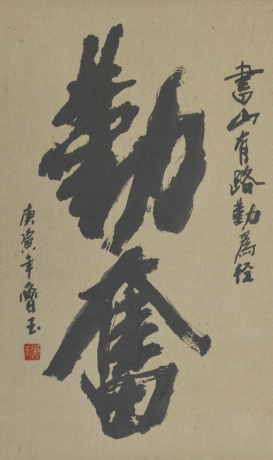 書山有路勤為徑
勤奮
庚寅年魯玉